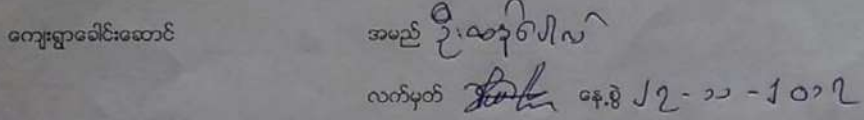 ကျေးရွာခေါင်းဆောင် အမည် ဦးထန်ပေါလ်
လက်မှတ် နေ့စွဲ ၂၇-၁၁-၂၀၁၇